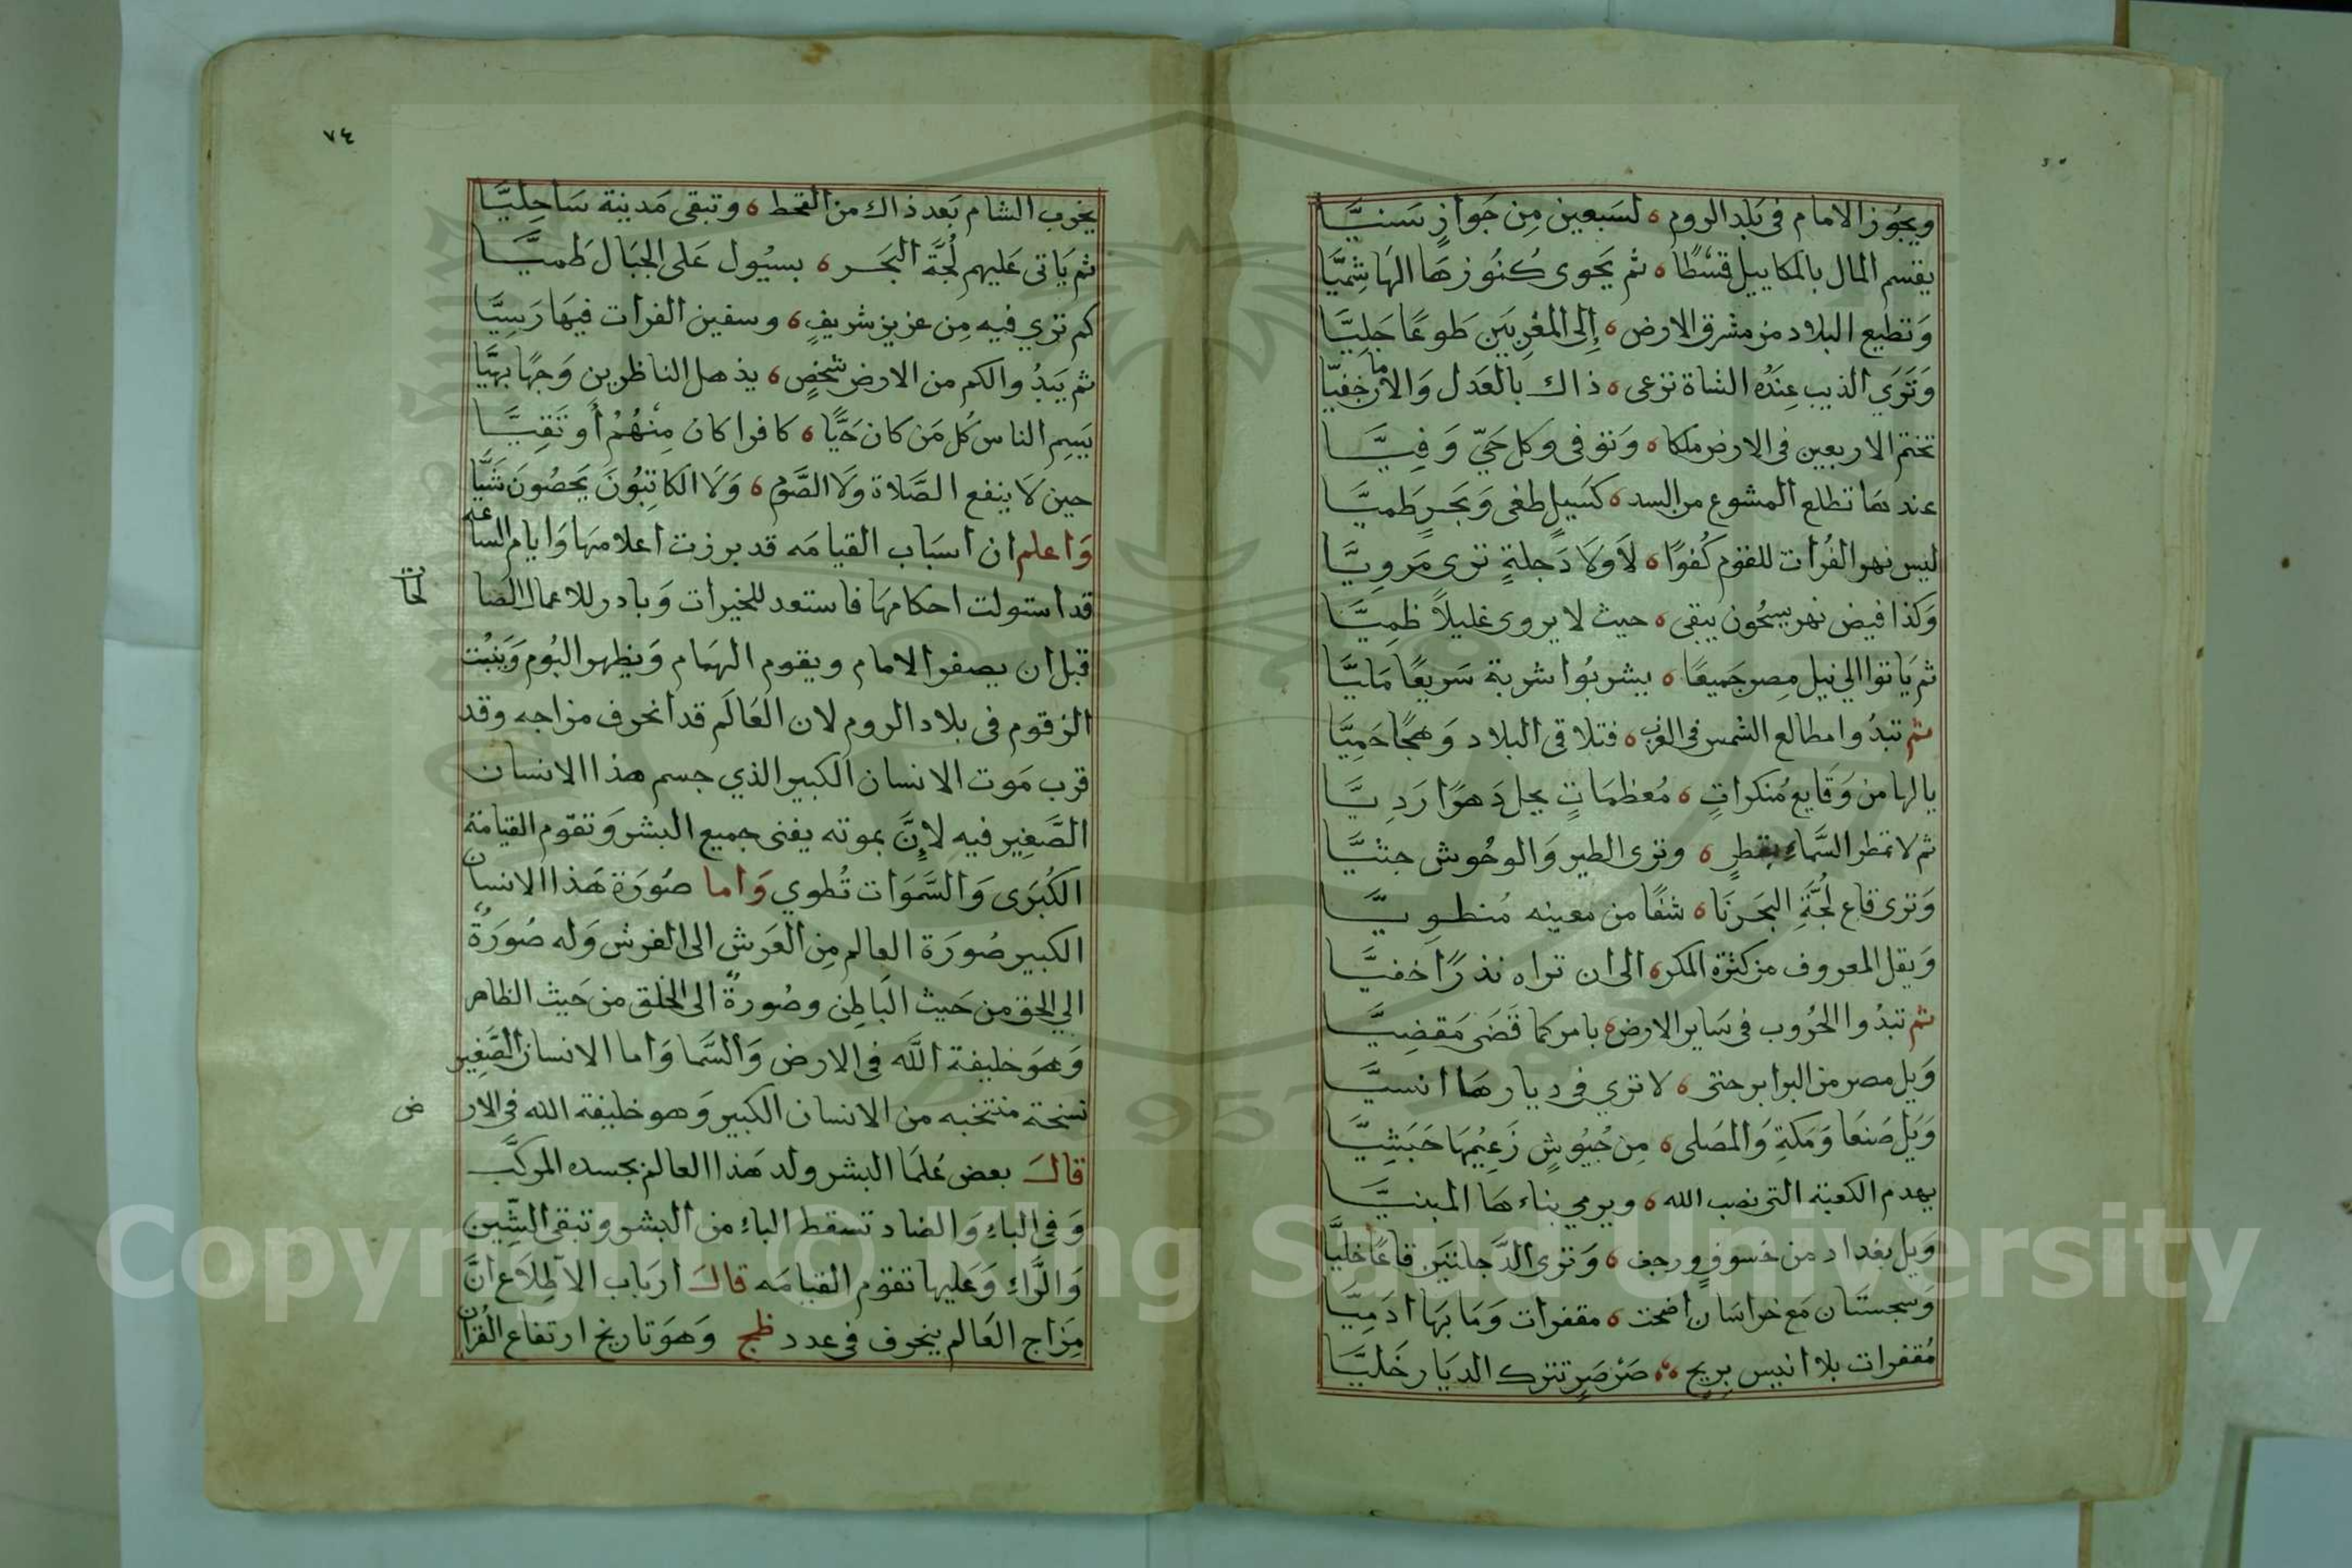 ويجوز الامام في بلد الروم ه لسبعين من جواز سنيّا
يقسم المال بالمكاييل قسطًا ه ثم يحوى كنوزها الهاشميّا
وتطيع البلاد من مشرق الارض ه إلى المغربين طوعًا جليّا
وترى الذيب عنده الشاة ترعى ه ذاك بالعدل والامر خفيّا
تختم الاربعين في الارض ملكا ه وتوفى وكل حيّ وفيّا
عندها تطلع المشوع من السد ه كسيل طغى وبحر طميّا
ليس نهر الفرات للقوم كفوًا ه لا ولا دجلة ترى مرويّا
وكذا فيض نهر سيحون يبقى ه حيث لا يروى غليلاً ظميّا
ثم ياتوا الي نيل مصر جميعًا ه يشربوا شربة سريعًا مليّا
ثم تبدوا مطالع الشمس في الغرب ه فتلاقى البلاد وهجًا حميّا
يا لها من وقايع منكرات ه معظمات يجل دهرًا رديّا
ثم لا تمطر السماء بقطر ه وترى الطير والوحوش جثيّا
وترى قاع لجة البحر نا ه شفًا من معينه منطويّا
ويقل المعروف من كثرة المكر ه الى ان تراه نذرًا خفيّا
ثم تبدوا الحروب في ساير الارض ه بامر كما قضى مقضيّا
ويل مصر من البرابر حتى ه لا تري في ديارها انسيّا
ويل صنعا ومكة والمصلى ه من جيوش زعيمها حبشيّا
يهدم الكعبة التي نصب الله ه ويرمي بناءها المبنيّا
ويل بغداد من خسوف ورجف ه وترى الدجلتين قاعًا خليّا
وسجستان مع خراسان اضحت ه مقفرات وما بها ادميّا
مقفرات بلا انيس بريح ه صرصر تترك الديار خليّا
٧٤
يخرب الشام بعد ذاك من القحط ه وتبقى مدينة ساحليّا
ثم ياتى عليهم لجّة البحر ه بسيول على الجبال طميّا
كم تري فيه من عزيز شريف ه وسفين الفرات فيها رسيّا
ثم يبدوا لكم من الارض شخص ه يذهل الناظرين وجهًا بهيّا
يسم الناس كل من كان حيًّا ه كافرا كان منهم أو تقيّا
حين لا ينفع الصّلاة ولا الصّوم ه ولا الكاتبون يحصون شيّا
واعلم ان اسباب القيامه قد برزت اعلامها وايام الساعه
قد استولت احكامها فاستعد للخيرات وبادر للاعمال الصالحات
قبل ان يصفر الامام ويقوم الهمام ويظهر البوم وينبت
الزقوم في بلاد الروم لان العالم قد انحرف مزاجه وقد
قرب موت الانسان الكبير الذي جسم هذا الانسان
الصّغير فيه لإنّ بموته يفنى جميع البشر وتقوم القيامة
الكبرى والسّموات تطوي واما صورة هذا الانسان
الكبير صورة العالم من العرش الى الفرش وله صورة
الي الحق من حيث الباطن وصورة الى الخلق من حيث الظاهر
وهو خليفة اللّه في الارض والسّما واما الانسان الصّغير
نسخة منتخبه من الانسان الكبير وهو خليفة الله في الارض
قال بعض علما البشر ولد هذا العالم بجسده المركّب
وفي الباء والضاد تسقط الباء من البشر وتبقى الشّين
والرّاء وعليها تقوم القيامه قال ارباب الاطلاع انّ
مزاج العالم ينحرف في عدد ظج وهو تاريخ ارتفاع القران